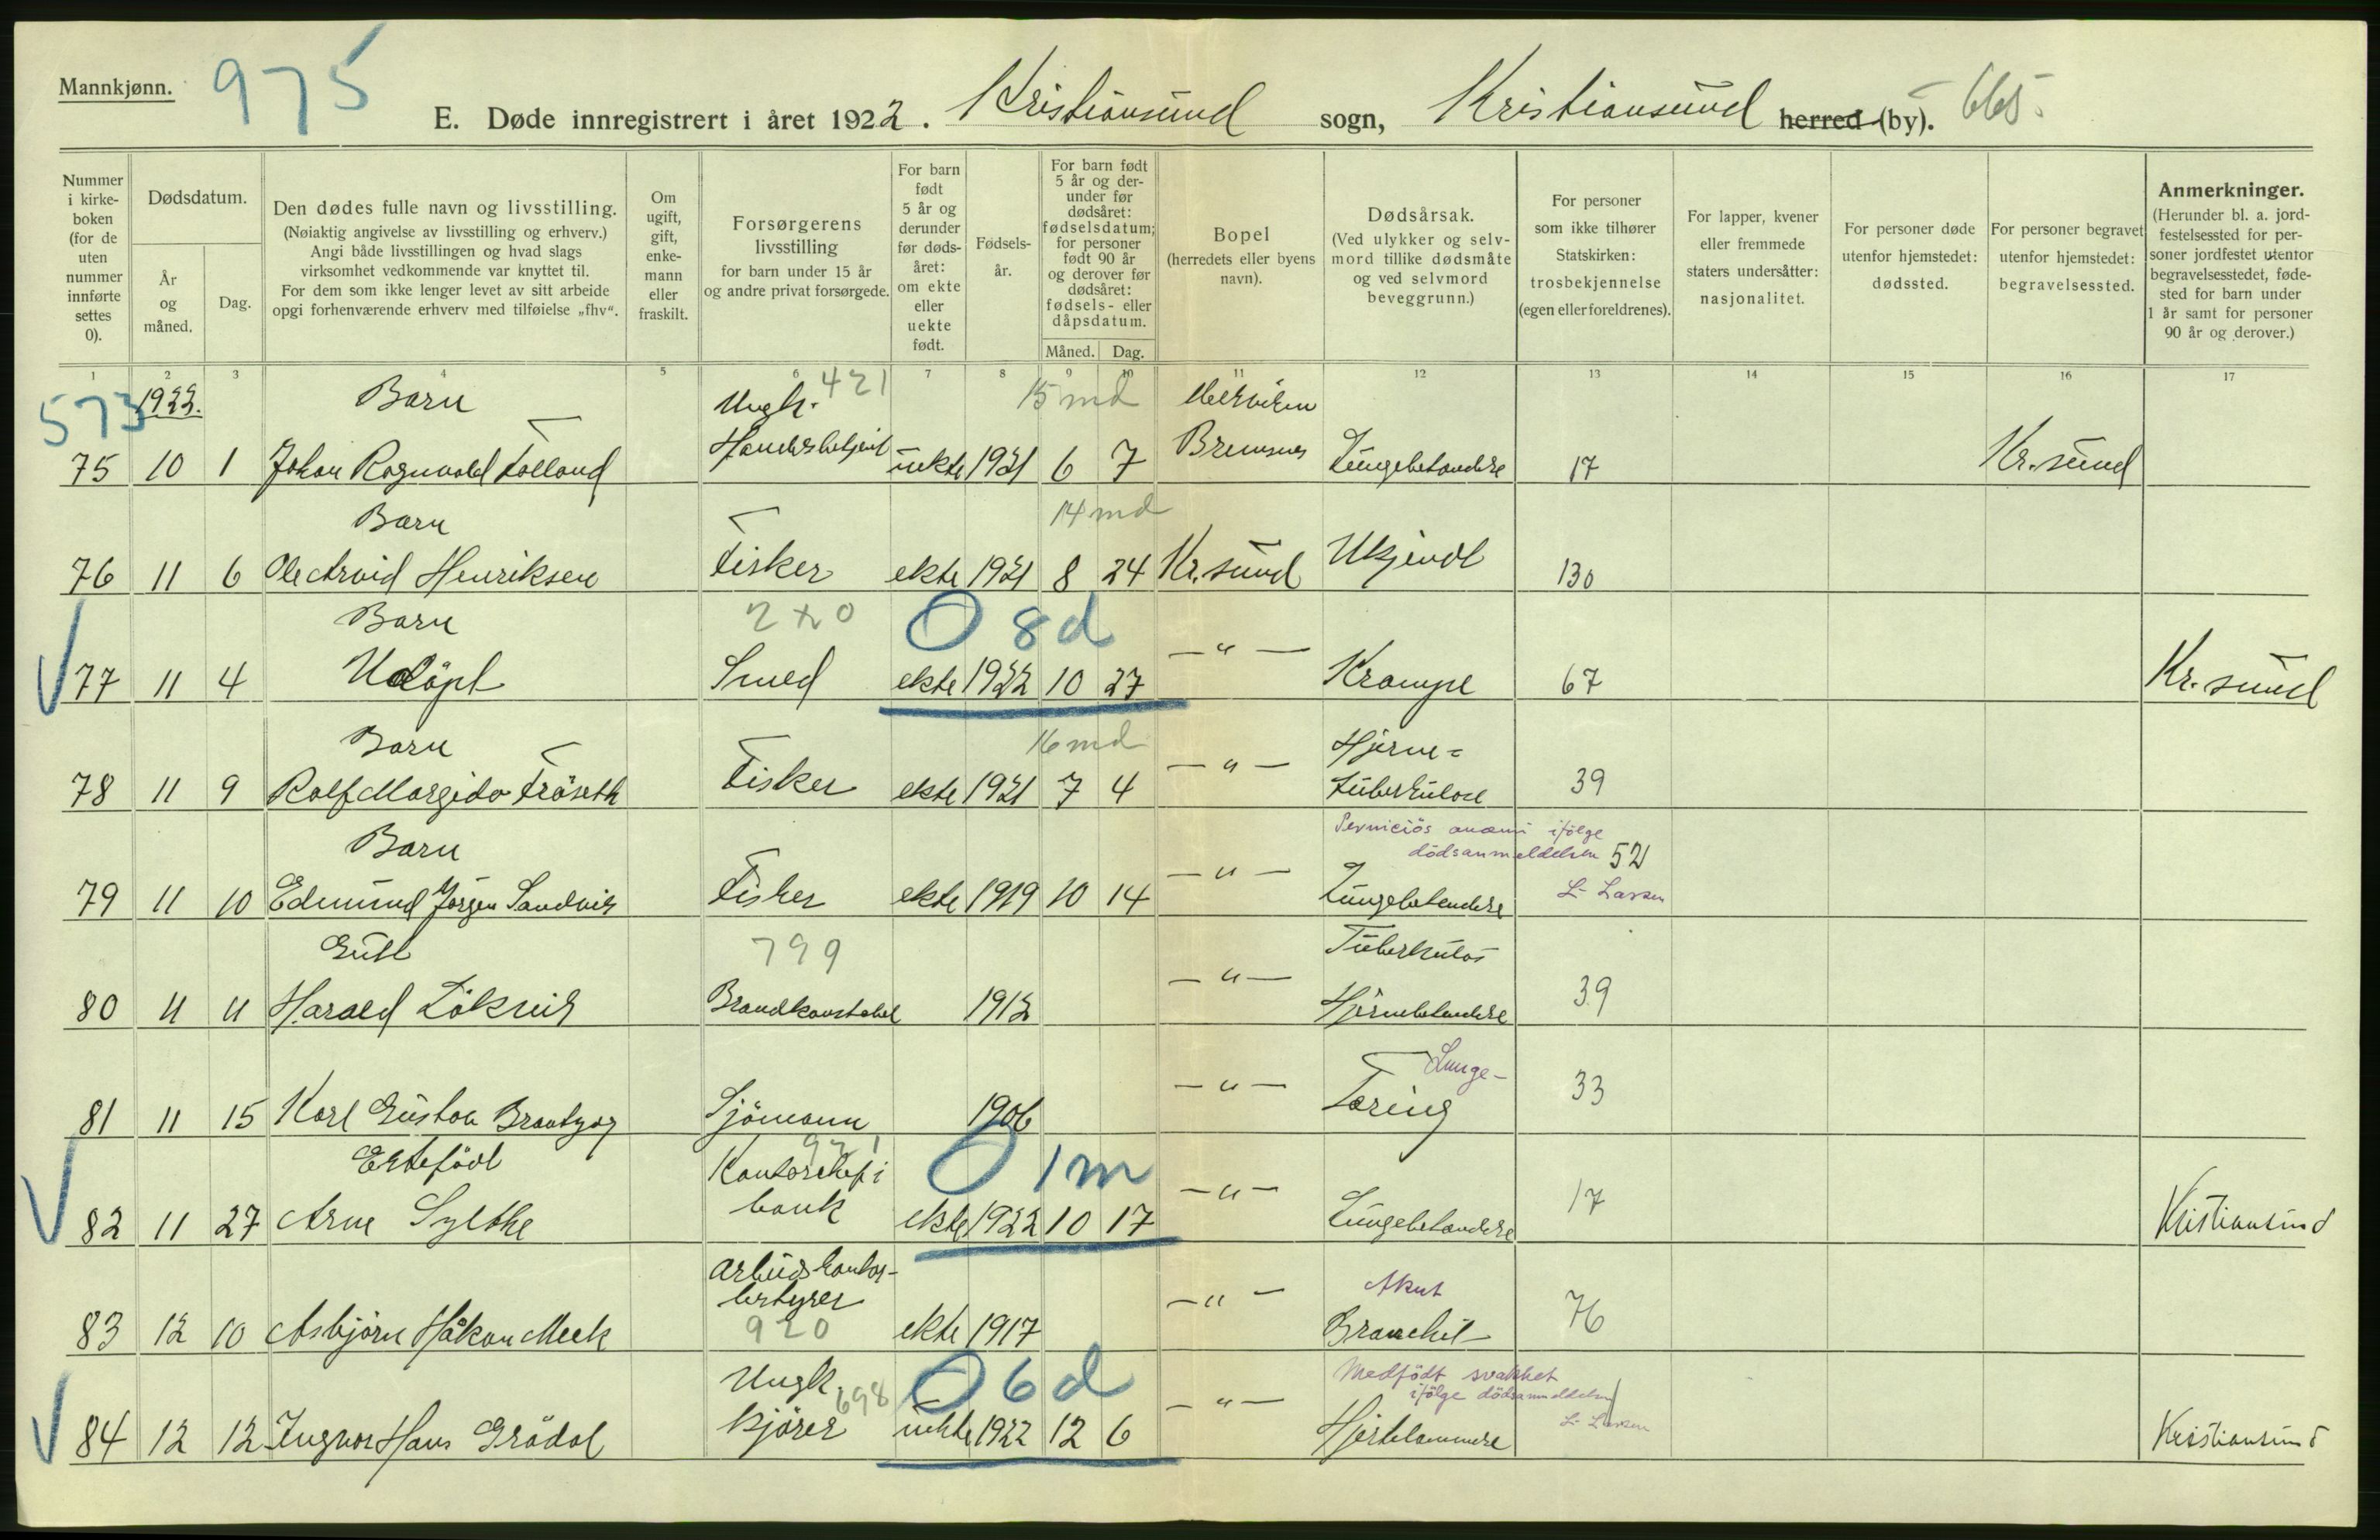 Mannkjønn. 975
E. Døde innregistrert i året 1922. Kristiansund sogn, Kristiansund herred (by). 665.
Nummer i kirkeboken (for de uten nummer innførte settes 0).
Dødsdatum.
År og måned.
Dag.
Den dødes fulle navn og livsstilling.
(Nøiaktig angivelse av livsstilling og erhverv.)
Angi både livsstillingen og hvad slags
virksomhet vedkommende var knyttet til.
For dem som ikke lenger levet av sitt arbeide
opgi forhenværende erhverv med tilføielse „fhv“.
Om ugift, gift, enkemann eller fraskilt.
Forsørgerens livsstilling
for barn under 15 år
og andre privat forsørgede.
For barn født 5 år og derunder før dødsåret: om ekte eller uekte født.
Fødselsår.
For barn født 5 år og derunder før dødsåret: fødselsdatum; for personer født 90 år og derover før dødsåret: fødsels- eller dåpsdatum.
Måned. Dag.
Bopel
(herredets eller byens navn).
Dødsårsak.
(Ved ulykker og selvmord tillike dødsmåte og ved selvmord beveggrunn.)
For personer som ikke tilhører Statskirken:
trosbekjennelse
(egen eller foreldrenes).
For lapper, kvener eller fremmede staters undersåtter:
nasjonalitet.
For personer døde utenfor hjemstedet:
dødssted.
For personer begravet utenfor hjemstedet:
begravelsessted.
Anmerkninger.
(Herunder bl. a. jordfestelsessted for personer jordfestet utenfor begravelsesstedet, fødested for barn under 1 år samt for personer 90 år og derover.)
1 2 3 4 5 6 7 8 9 10 11 12 13 14 15 16 17
573 1922. Barn Ungk. 421 15 md
75 10 1 Johan Ragnvald Folland Handelsbetjent uekte 1921 6 7 Bremsnes Lungebetændelse 17 Kr.sund
Barn 14 md
76 11 6 Ole Arvid Henriksen Fisker ekte 1921 8 24 Kr.sund Ukjendt 130
Barn 220 O 8 d
77 11 4 Udöpt Smed ekte 1922 10 27 —"— Krampe 67 Kr.sund
Barn 16 md Hjerne=
78 11 9 Rolf Margido Fröseth Fisker ekte 1921 7 4 —"— tuberkulose 39
Barn Perniciös anæmi ifölge
dödsanmeldelsen 52
79 11 10 Edmund Jörgen Sandvik Fisker ekte 1919 10 14 —"— Lungebetændelse L. Larsen
Gutt 799 Tuberkulös
80 11 11 Harald Lökvik Brandkonstabel 1912 —"— Hjernebetændelse 39
Lunge-
81 11 15 Karl Gustav Sjömann 1906 —"— Tæring 33
Ektefödt 921 Kontorchef i O 1 m
82 11 27 Arne Sylthe bank ekte 1922 10 17 —"— Lungebetændelse 17 Kristiansund
Arbeidskontor-
bestyrer Akut
83 12 10 Asbjörn Håkon Meek 920 ekte 1917 —"— Bronchit 76
Ungk. 698 O 6 d Medfödt svakhet
ifölge dödsanmeldelsen
84 12 12 Ingvar Hans Grödal kjörer uekte 1922 12 6 —"— Hjertelammelse L. Larsen Kristiansund